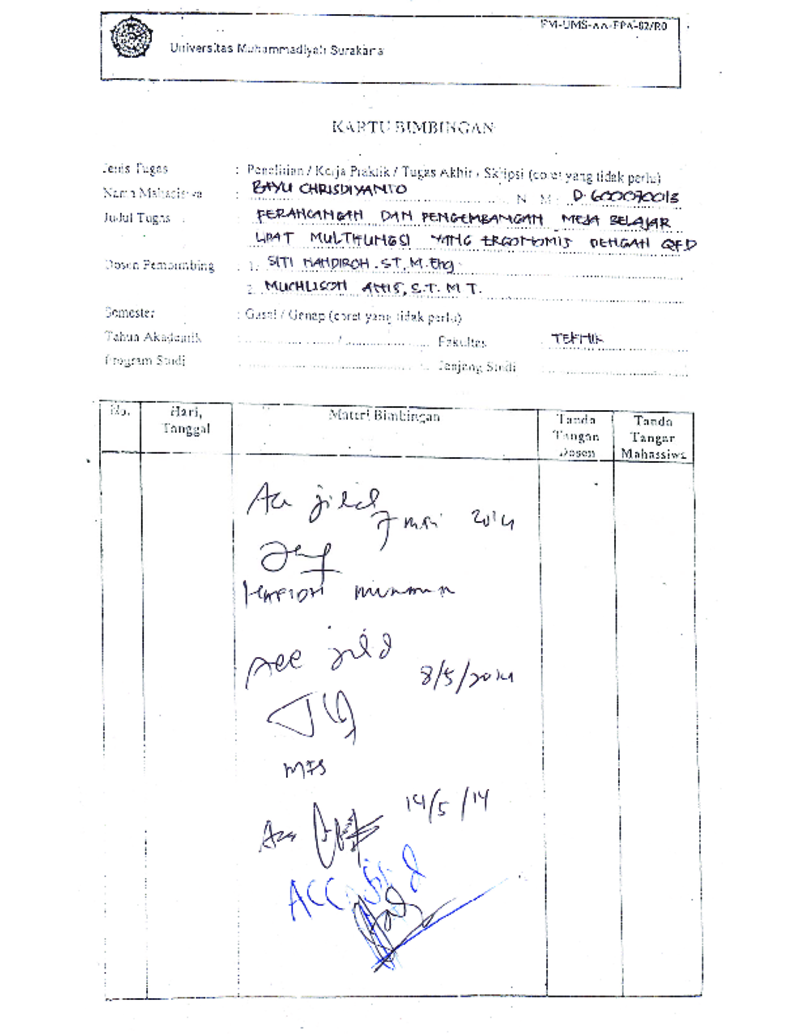 FM-UMS-AA-FPA-02/R0
Universitas Muhammadiyah Surakarta
KARTU BIMBINGAN
Jenis Tugas : Penelitian / Kerja Praktik / Tugas Akhir / Skripsi (coret yang tidak perlu)
Nama Mahasiswa : BAYU CHRISDIYANTO N I M : D.600070013
Judul Tugas : PERANCANGAN DAN PENGEMBANGAN MEJA BELAJAR
LIPAT MULTIFUNGSI YANG ERGONOMIS DENGAN QFD
Dosen Pembimbing : 1. SITI NANDIROH.ST, M.Eng
2. MUCHLISON ANIS, S.T. M T.
Semester : Gasal / Genap (coret yang tidak perlu)
Tahun Akademik : / Fakultas : TEKNIK
Program Studi : Jenjang Studi :
No. Hari, Tanggal Materi Bimbingan Tanda Tangan Dosen Tanda Tangan Mahasiswa
Acc jilid
7 mei 2014
Acc jilid
8/5/2014
MFS
Acc 14/5/14
ACC jilid